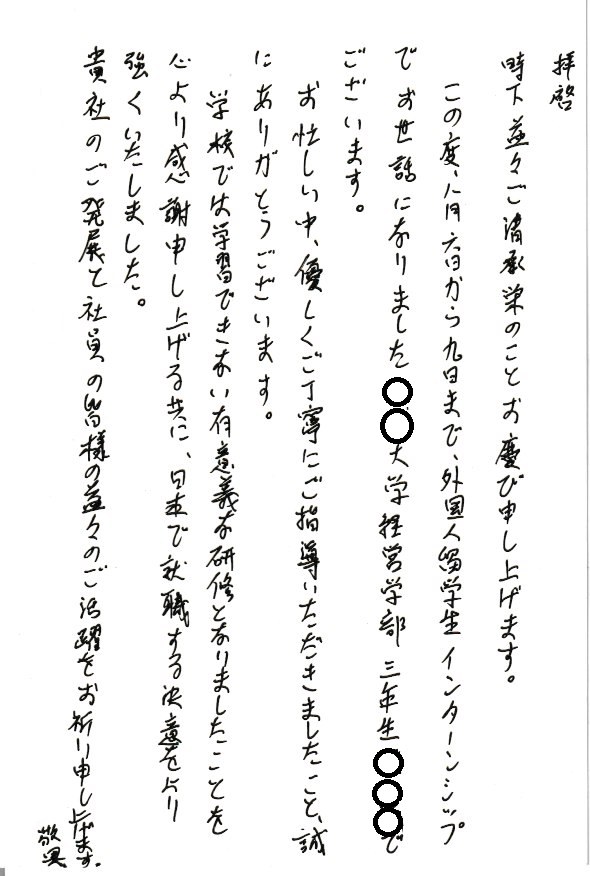 拝啓
時下益々ご清承栄のことお慶び申し上げます。
この度、八月六日から九日まで、外国人留学生インターンシップ
でお世話になりました〇〇大学経営学部三年生〇〇〇で
ございます。
お忙しい中、優しくご丁寧にご指導いただきましたこと、誠
にありがとうございます。
学校では学習できない有意義な研修となりましたことを
心より感謝申し上げる共に、日本で就職する決意をより
強くいたしました。
貴社のご発展と社員の皆様の益々のご活躍をお祈り申し上げます。
敬具